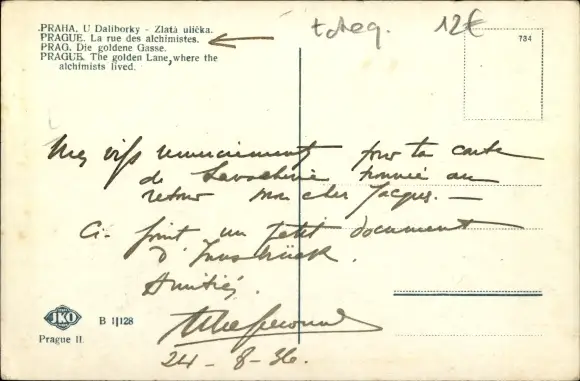 PRAHA. U Daliborky - Zlatá ulička.
PRAGUE. La rue des alchimistes.
PRAG. Die goldene Gasse.
PRAGUE. The golden Lane, where the
alchimists lived.
12€
734
Mes vifs remerciements pour ta carte
de trouvée au
retour mon cher Jacques. —
Ci-joint un petit document
d'Innsbrück.
Amitiés.
24-8-36.
JKO
B 1|128
Prague II.